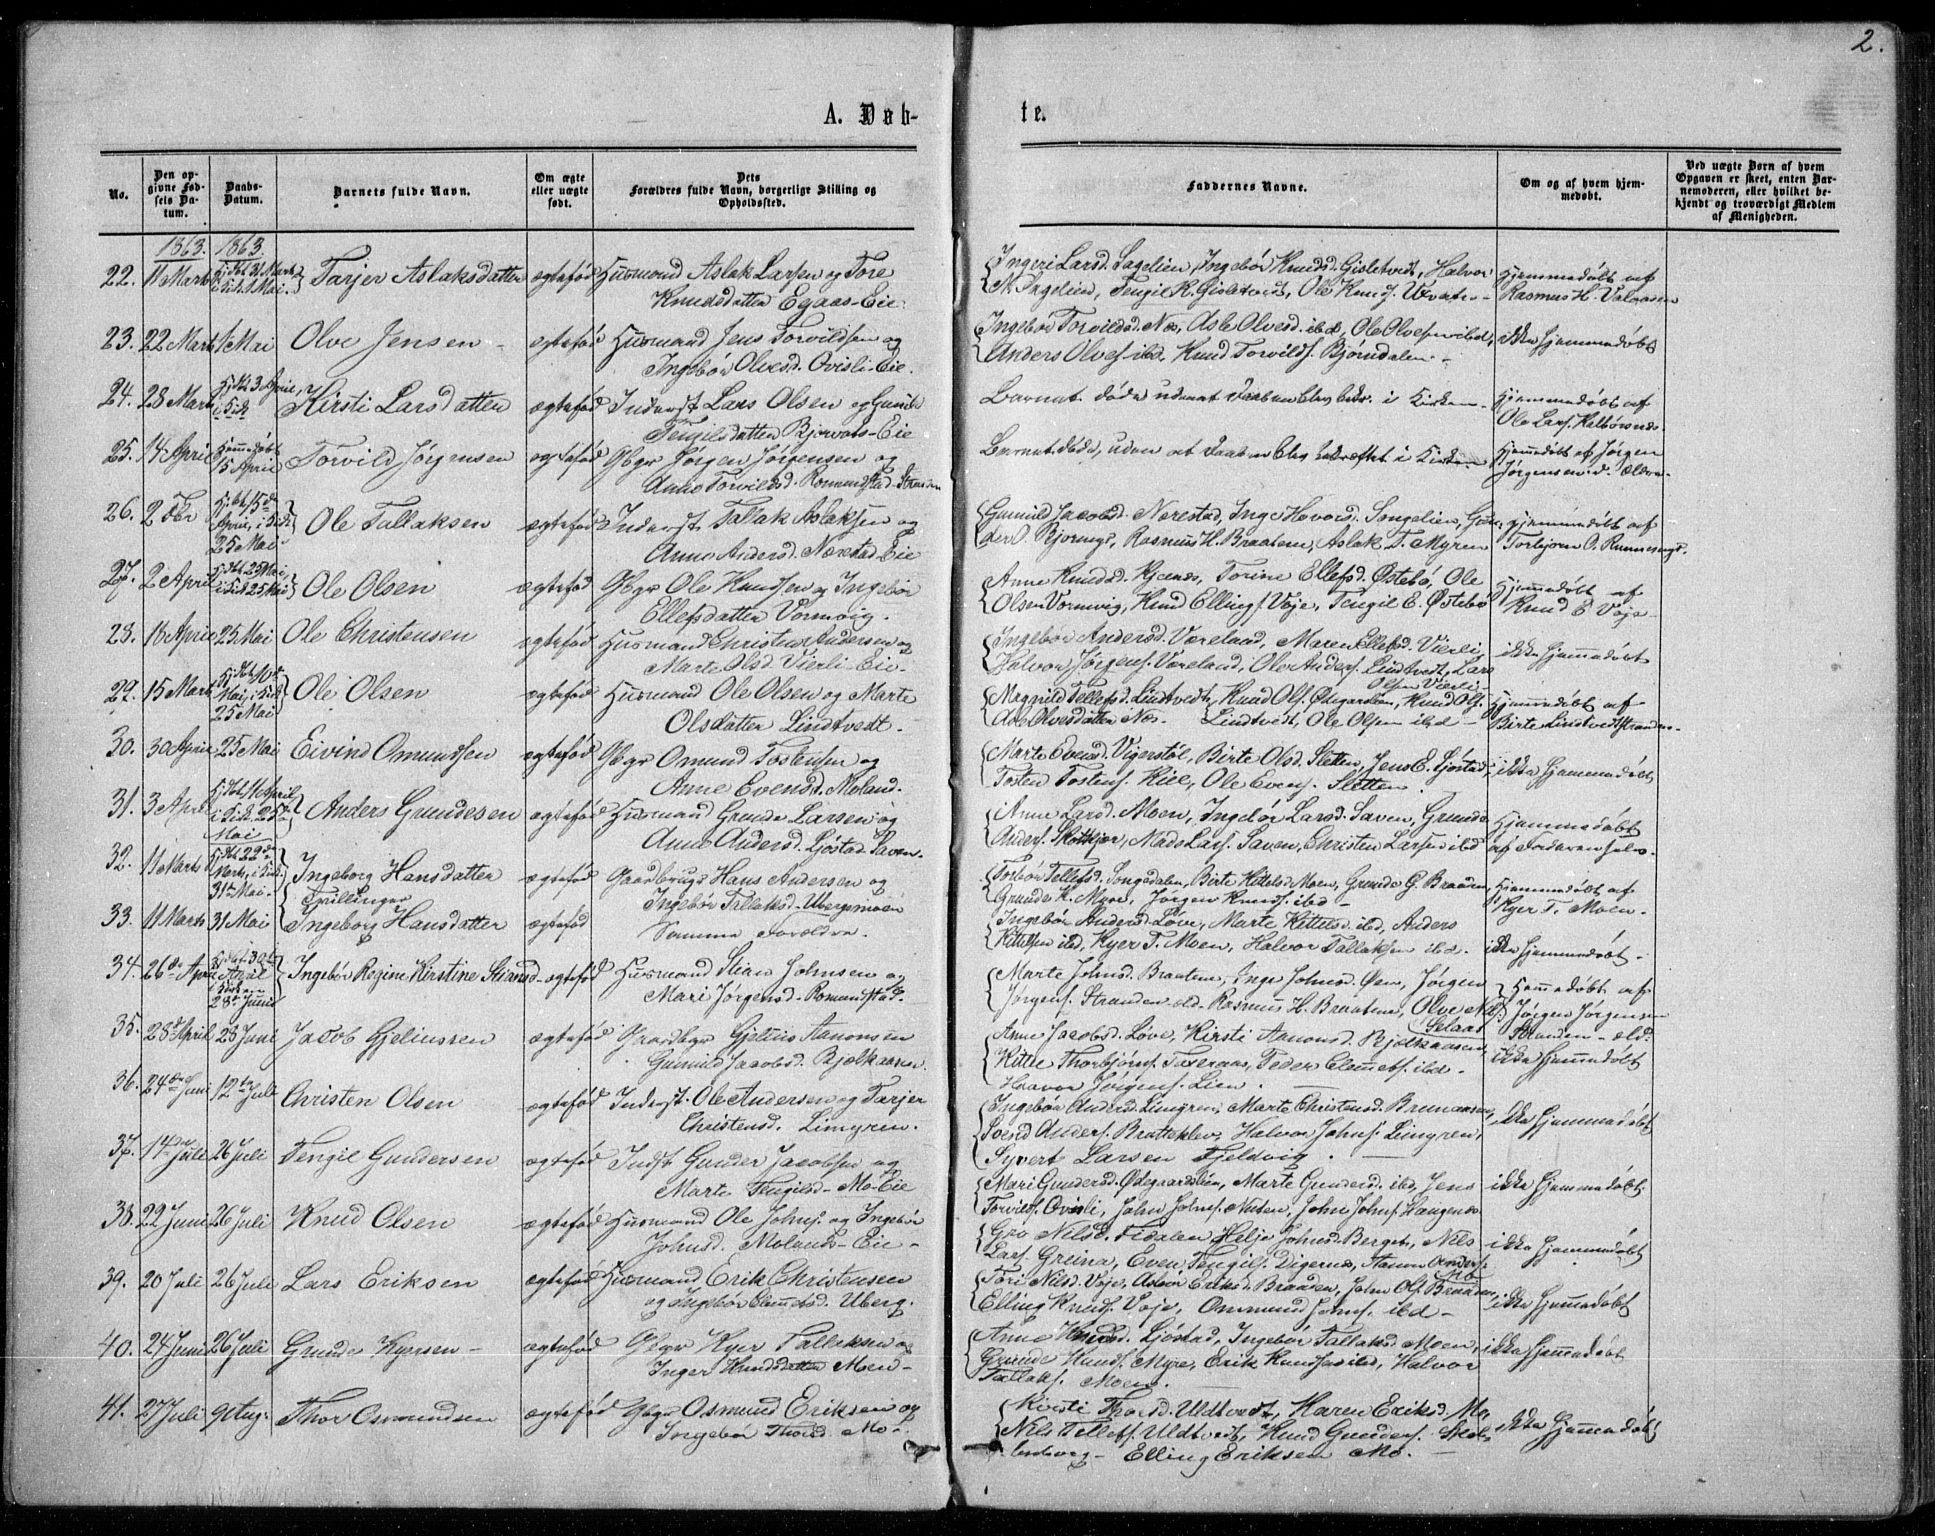 2.
A. Døb-
te.
No.
Den op-
givne Fød-
sels Da-
tum.
Daabs-
Datum.
Barnets fulde Navn.
Om ægte
eller uægte
født.
Dets
Forældres fulde Navn, borgerlige Stilling og
Opholdssted.
Faddernes Navne.
Om og af hvem hjem-
medøbt.
Ved uægte Børn af hvem
Opgaven er skeet, enten Bar-
nemoderen, eller hvilket be-
kjendt og troværdigt Medlem
af Menigheden.
1863. 1863
22. 11 Marts Tarjer Aslaksdatter ægtefød Husmand Aslak Larsen og Tore
Knudsdatter Egaas-Eie.
Ingeri Larsd. Sagelien, Ingebør Knudsd. Gisletvedt, Halvor
Hjemmedøbt af
Rasmus H. Valaasen
23. 22 Marts 1 Mai Olve Jensen - ægtefød Husmand Jens Torvildsen og
Ingebør Olvesd. Ovisli-Eie.
Ingebør Torvildsd. Næs, Aasle Olvesd. ibd, Ole Olvesen ibd,
Anders Olves. ibd, Knud Torvilds. Bjørndalen.-
ikke hjemmedøbt
24. 28 Marts Kirsti Larsdatter ægtefød Inderst Lars Olsen og Gunild
Tengilsdatter Bjorvats-Eie
Barnet døde, uden at Daaben blev bekr. i Kirken -
Hjemmedøbt af
Ole Lars.
25. 14 April Hjemmedøbt
15 April Torvild Jørgensen ægtefød Gbgr Jørgen Jørgensen og
Anne Torvildsd. Romundstad-Stranden
Barnet døde, uden at Daaben blev bekræftet i Kirken
Hjemmedøbt af Jørgen
Jørgensen d. Ældre
26. 2 Fbr
25 Mai Ole Tallaksen ægtefød Inderst Tallak Aslaksen og
Anne Andersd. Nærestad-Eie
Gunild Jacobsd. Nærestad, Inge Havorsd. Songelien, Gun-
der O. Bjornngs, Rasmus H. Braaten, Aslak T. Myren
hjemmedøbt af
Torbjørn O.
27. 2 April Ole Olsen ægtefød Gbgr Ole Knudsen og Ingebør
Ellefsdatter Vormvig.
Anne Knudsd. Kjenes, Torine Ellefsd. Østebø, Ole
Olsen Vormvig, Knud Ellings. Voje, Tengil E. Østebø
hjemmedøbt af
Knud E Voje
28. 16 April 25 Mai Ole Christensen ægtefød Husmand Christen Andersen og
Marte Olsd. Vierli-Eie-
Ingebør Andersd. Væreland, Maren Ellefsd. Vierli,
Halvor Jørgens. Væreland, Ole Anders. Lindtvedt, Lars
Olsen Vierli-
ikke hjemmedøbt
29. 15 Marts
25 Mai Ole Olsen ægtefød Husmand Ole Olsen og Marte
Olsdatter Lindtvedt.
Magnild Tellefsd. Lindtvedt, Knud Ols. Ødegaardsen, Knud Ols.
Aase Olvesdatter Næs. Lindtvedt, Ole Olsen ibd -
Hjemmedøbt af
Birte Lindtvedtstranden
30. 30 April 25 Mai Eivind Omundsen ægtefød Gbgr Omund Tostensen og
Anne Evensd. Moland.
Marte Evensd. Vigerstøl, Birte Olsd. Sletten, Jens E. Ljøstad,
Tosten Tostens. Kile, Ole Evens. Sletten.
ikke hjemmedøbt
31. 3 April
Mai Anders Grundesen ægtefød Husmand Grunde Larsen og
Anne Andersd. Ljøstad-Saven.
Anne Larsd. Moen, Ingebør Larsd. Saven, Grunde
Anders. Skotkjær, Mads Lars. Saven, Christen Larsen ibd
Hjemmedøbt
af Faderen selv.
32. 11 Marts
31te Mai. Ingeborg Hansdatter ægtefød Gaardbrugr Hans Andersen og
Tvillinger
Ingebør Tallaksd. Ubergsmoen
Torbør Tellefsd. Songedalen, Birte Kittelsd Moen, Grunde G. Braaden,
Grunde K. Myre, Jørgen Knuds. ibd-
Hjemmedøbt af
Kyer T. Moen.
33. 11 Marts 31 Mai Ingeborg Hansdatter ægtefød Samme Forældre.
Ingebør Andersd. Løve, Marte Kittelsd ibd, Anders
Kittelsen ibd, Kyer T. Moen, Halvor Tallaksen ibd.
ikke hjemmedøbt-
34. 26de April
28de Juni Ingebør Regine Kirstine Stiansd- ægtefød Husmand Stian Johnsen og
Mari Jørgensd. Romunstad.
Marte Johnsd. Braaten, Inge Johnsd. Øen, Jørgen
Jørgens. Stranden æld. Rasmus H. Braaten, Olve Nils.
Selaas
Hjemmedøbt af
Jørgen Jørgensen
Stranden æld.
35. 28de April 28 Juni Jacob Gjeliussen ægtefød Gaardbgr Gjelius Aanonsen
Gunild Jacobsd. Bjelkaasen.
Anne Jacobsd. Løve, Kirsti Aanonsd. Bjelkaasen,
Kittel Thorbjørns. Taxeraas, Peder Clemets. ibd-
Haavor Jørgens. Lien.
ikke hjemmedøbt
36. 24de Juni 12te Juli Christen Olsen ægtefød Inderst. Ole Andersen og Tarjer
Christensd. Limyren.
Ingebør Andersd. Limyren, Marte Christensd. Brumaasen,
Svend Anders. Bratteklev, Halvor Johns. Limyren,
Syvert Larsen Fjeldvig.
ikke hjemmedøbt
37. 14de Juli 26 Juli Tengil Gundersen ægtefød Indst. Gunder Jacobsen og
Marte Tengilsd- Mo-Eie
Mari Gundersd. Ødegaardslien, Marte Gundersd. ibd, Jens
Torvilds. Ovisli, John Johns. Nuten, John Johs. Haugenes.
ikke hjemmedøbt.
38. 22 Juni 26 Juli Knud Olsen ægtefød Husmand Ole Johns. og Ingebør
Johnsd. Molands-Eie-
Gro Nilsd. Fidalen, Helje Johnsd. Berget, Nils
Lars. Greina, Even Tengils. Digernes, Aanon Anders.
Mo
ikke hjemmedøbt
39. 20 Juli 26 Juli Lars Eriksen ægtefød Husmand Erik Christensen
og Ingebør Clemetsd. Uberg.
Tori Nilsd. Voje, Aslaug Eriksd. Braaden, John Ols. Braaden,
Elling Knuds. Voje, Ommund Johns. ibd-
ikke hjemmedøbt
40. 24 Juni 26 Juli Grunde Kyersen - ægtefød Gbgr Kyer Tallaksen og
Inger Knudsdatter Moen-
Anne Knudsd. Ljøstad, Ingebør Tallaksd. Moen,
Grunde Knuds. Myre, Erik Knudsen ibd, Halvor
Tallaks. Moen.
ikke hjemmedøbt
41. 27 Juli 9 Aug. Thor Osmundsen ægtefød Gbgr Osmund Eriksen og
Ingebør Thorsd. Mo-
Kirsti Thorsd. Uldtvedt, Karen Eriksd. Mo,
Nils Tellefs. Uldtvedt, Knud Gunders.
Elling Eriksen Mo.
ikke hjemmedøbt